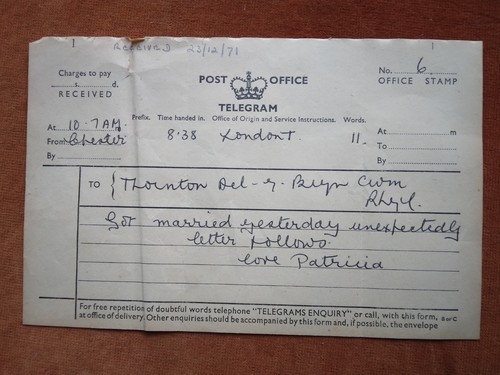 RECEIVED 23/12/71
Charges to pay
s. d.
RECEIVED
POST OFFICE
TELEGRAM
No. 6
OFFICE STAMP
Prefix. Time handed in. Office of Origin and Service Instructions. Words.
At 10.7AM m
From Chester
By
8.38 London T. 11
At m
To
By
TO Thornton Del-y-Bryn Cwm
Rhyl.
Got married yesterday unexpectedly
letter follows
love Patricia
For free repetition of doubtful words telephone "TELEGRAMS ENQUIRY" or call, with this form, B or C
at office of delivery. Other enquiries should be accompanied by this form and, if possible, the envelope